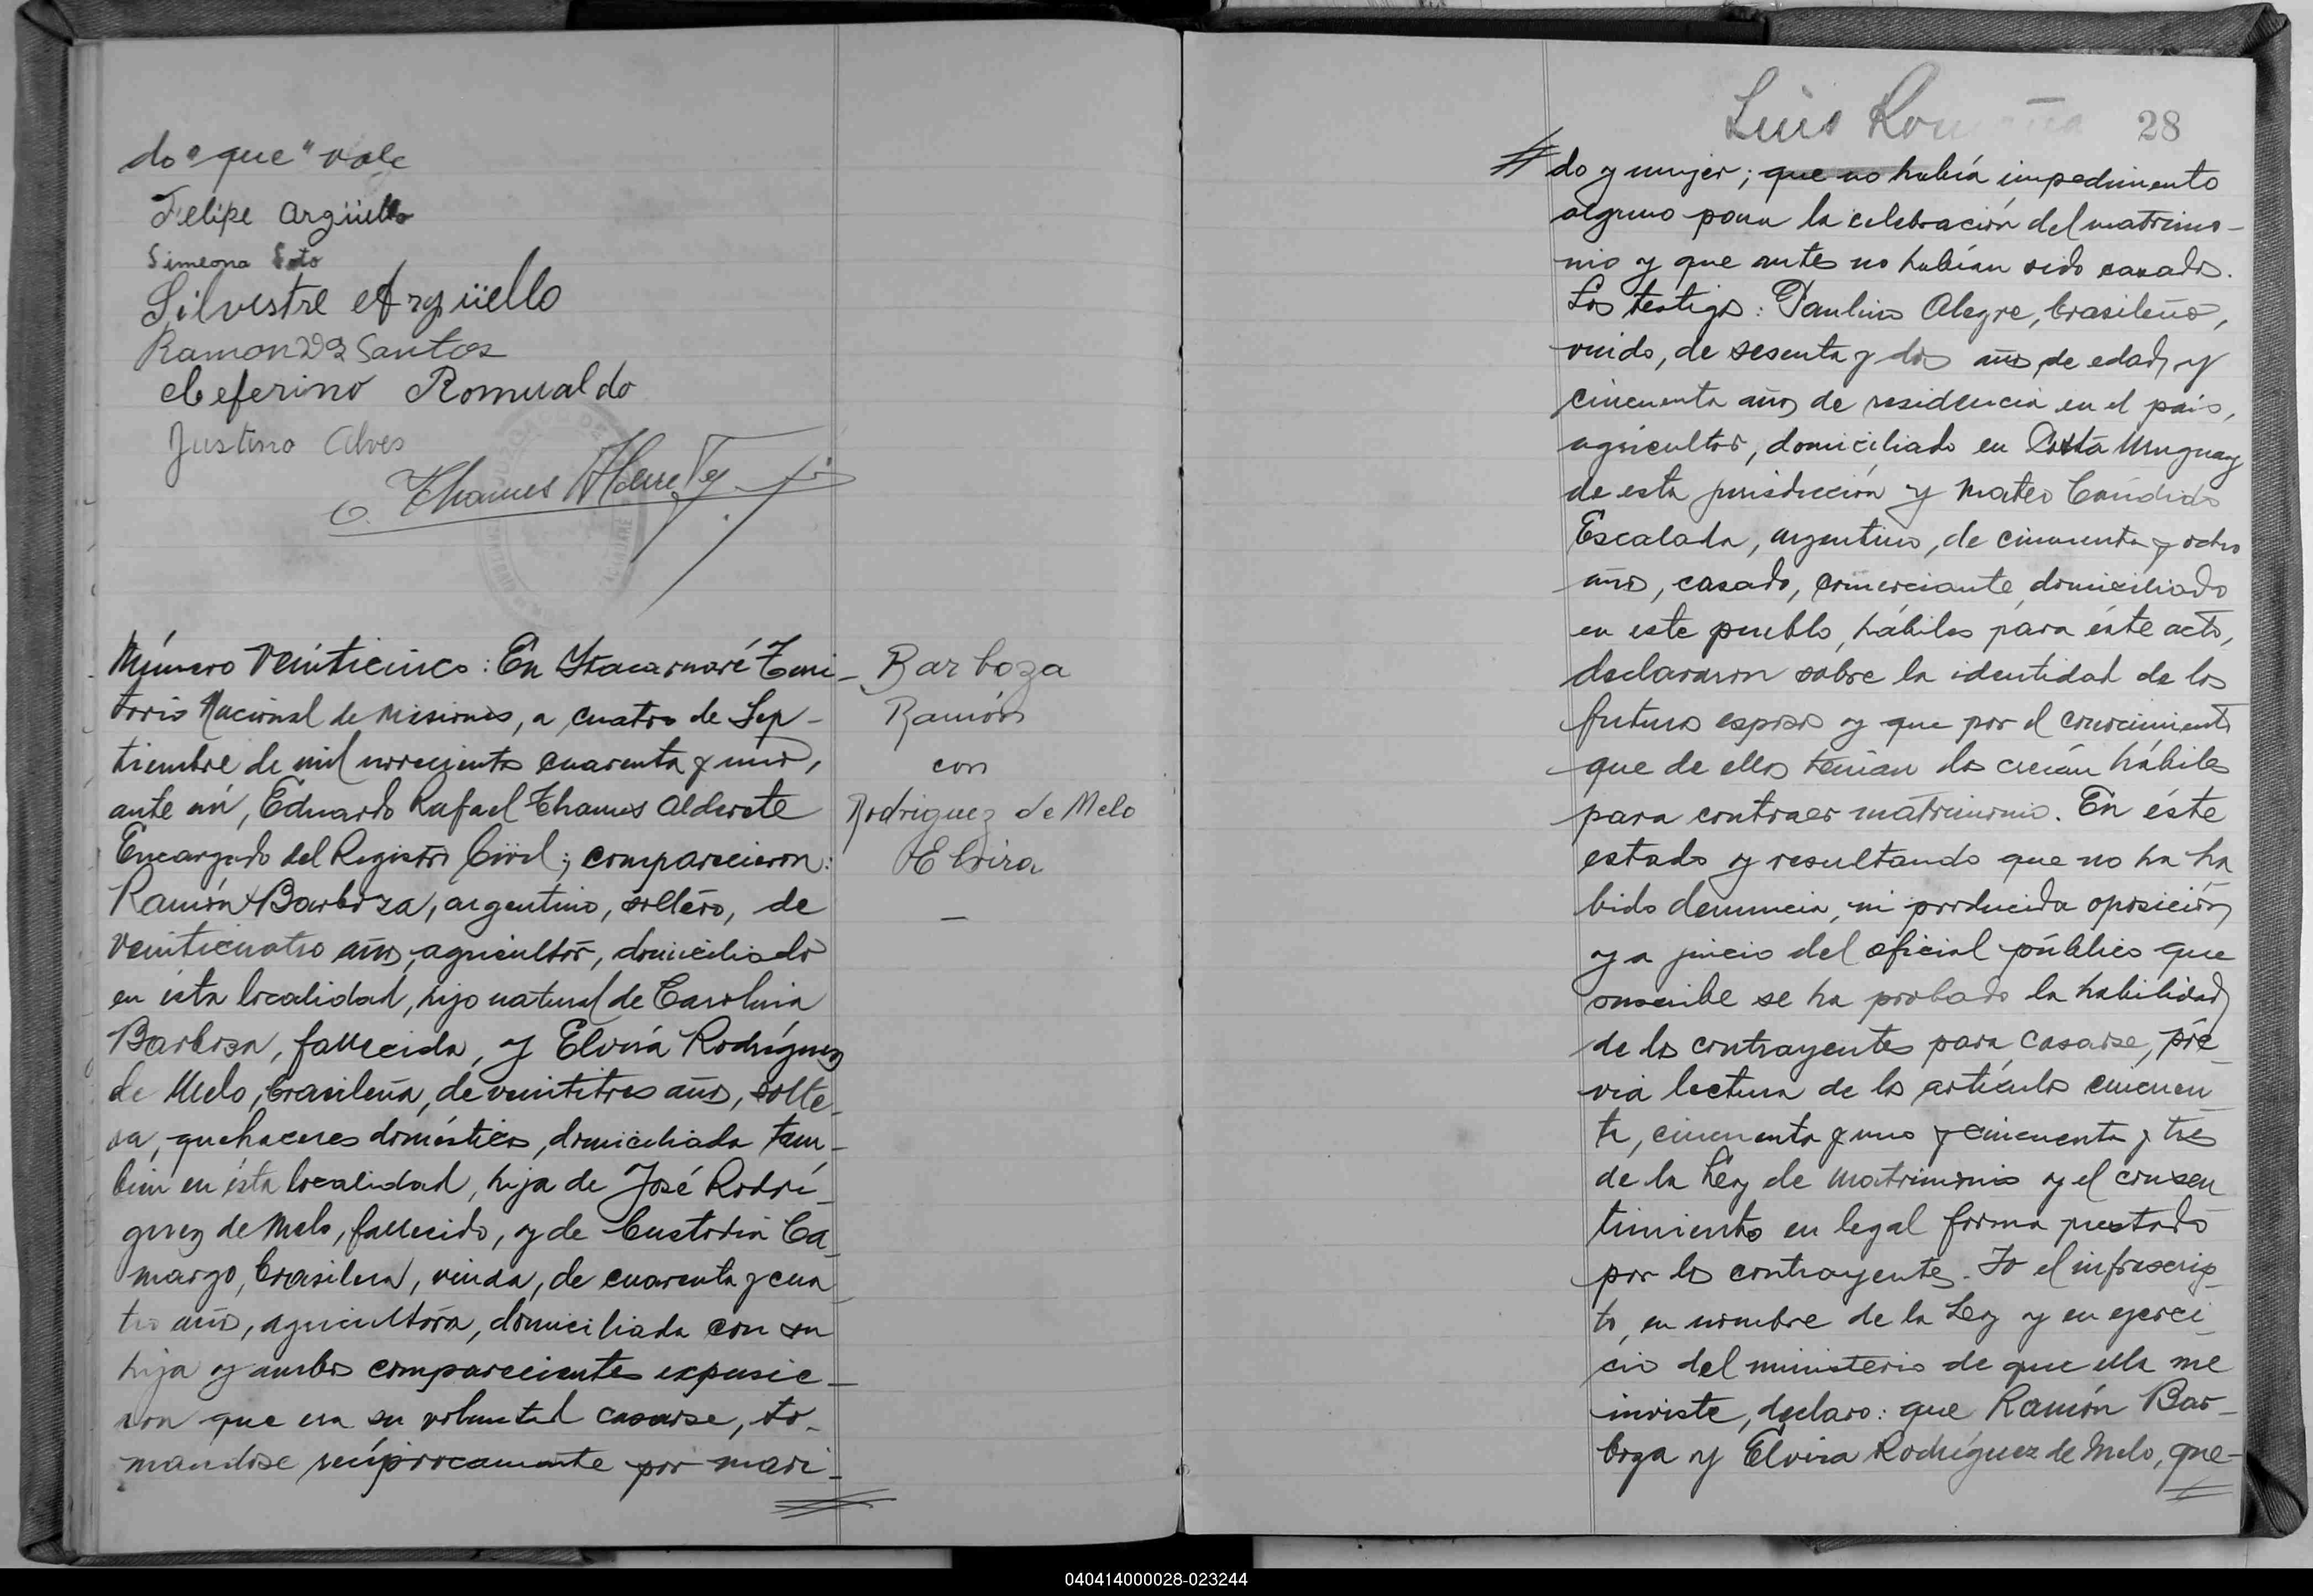 do "que" vale
Felipe Argüello
Simeona Soto
Silvestre Argüello
Ramon Dos Santos
Ceferino Romualdo
Justino Alves
E. Thames Alderete
Número veinticinco: En Itacaruaré Terri-
torio Nacional de Misiones, a cuatro de Sep-
tiembre de mil novecientos cuarenta y uno,
ante mí, Eduardo Rafael Thames Alderete
Encargado del Registro Civil; comparecieron:
Ramón Barboza, argentino, soltero, de
veinticuatro años, agricultor, domiciliado
en ésta localidad, hijo natural de Carolina
Barboza, fallecida, y Elvira Rodríguez
de Melo, brasileña, de veintitres años, solte-
ra, quehaceres domésticos, domiciliada tam-
bien en ésta localidad, hija de José Rodrí-
guez de Melo, fallecido, y de Custodia Ca-
margo, brasilera, viuda, de cuarenta y cua
tro años, agricultora, domiciliada con su
hija y ambos comparecientes expusie-
ron que era su voluntad casarse, to-
mandose recíprocamente por mari-
Barboza
Ramón
con
Rodriguez de Melo
Elvira
Luis
28
do y mujer; que no había impedimento
alguno para la celebración del matrimo-
nio y que antes no habían sido casados.
Los testigos: Paulino Alegre, brasileño,
viudo, de sesenta y dos años de edad y
cincuenta años de residencia en el país,
agricultor, domiciliado en Costa Uruguay
de esta jurisdicción y Mateo Cándido
Escalada, argentino, de cincuenta y ocho
años, casado, comerciante, domiciliado
en este pueblo, hábiles para éste acto,
declararon sobre la identidad de los
futuros esposos y que por el conocimiento
que de ellos tenían los creían hábiles
para contraer matrimonio. En éste
estado y resultando que no ha ha
bido denuncia, ni producida oposición
y a juicio del oficial público que
suscribe se ha probado la habilidad
de los contrayentes para casarse, pre
via lectura de los artículos cincuen
ta, cincuenta y uno y cincuenta y tres
de la Ley de Matrimonio y el consen
timiento en legal forma prestado
por los contrayentes. Yo el infrascrip
to, en nombre de la Ley y en ejerci
cio del ministerio de que ella me
inviste, declaro: que Ramón Bar-
boza y Elvira Rodríguez de Melo, que-
040414000028-023244